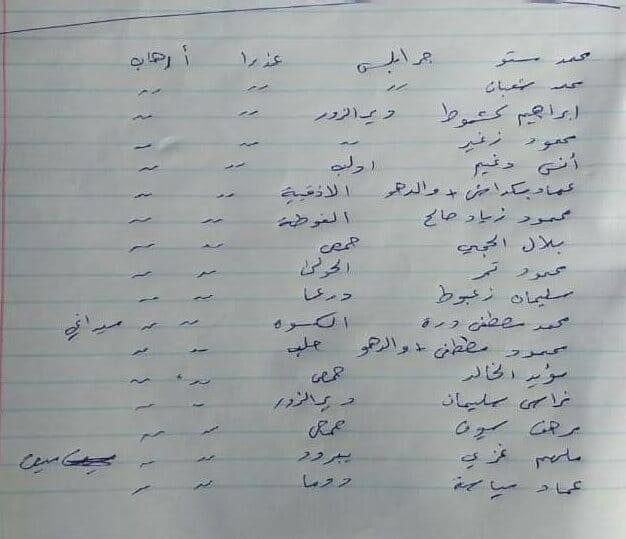 محمد ستو جرابلس عذرا أ رهاب
محمد شعبان ~~ ~~ ~~
ابراهيم كشوط ديرالزور ~~ ~~
محمود زغير ~~ ~~ ~~
أنس دغيم ادلب ~~ ~~
عماد + والدهو الاذقية ~~ ~~
محمود زياد صالح الغوطة ~~ ~~
بلال الحجي حمص ~~ ~~
محمود تمر الحولى ~~ ~~
سليمان زعبوط درعا ~~ ~~
محمد مصطفى درة الكسوه ~~ ~~ ميداني
محمود مصطفى + والدهو حلب ~~ ~~
مؤيد الخالد حمص ~~ ~~
فراس سليمان ديرالزور ~~ ~~
حمص ~~ ~~
ملهم غزي يبرود ~~ ~~
عماد دوما ~~ ~~